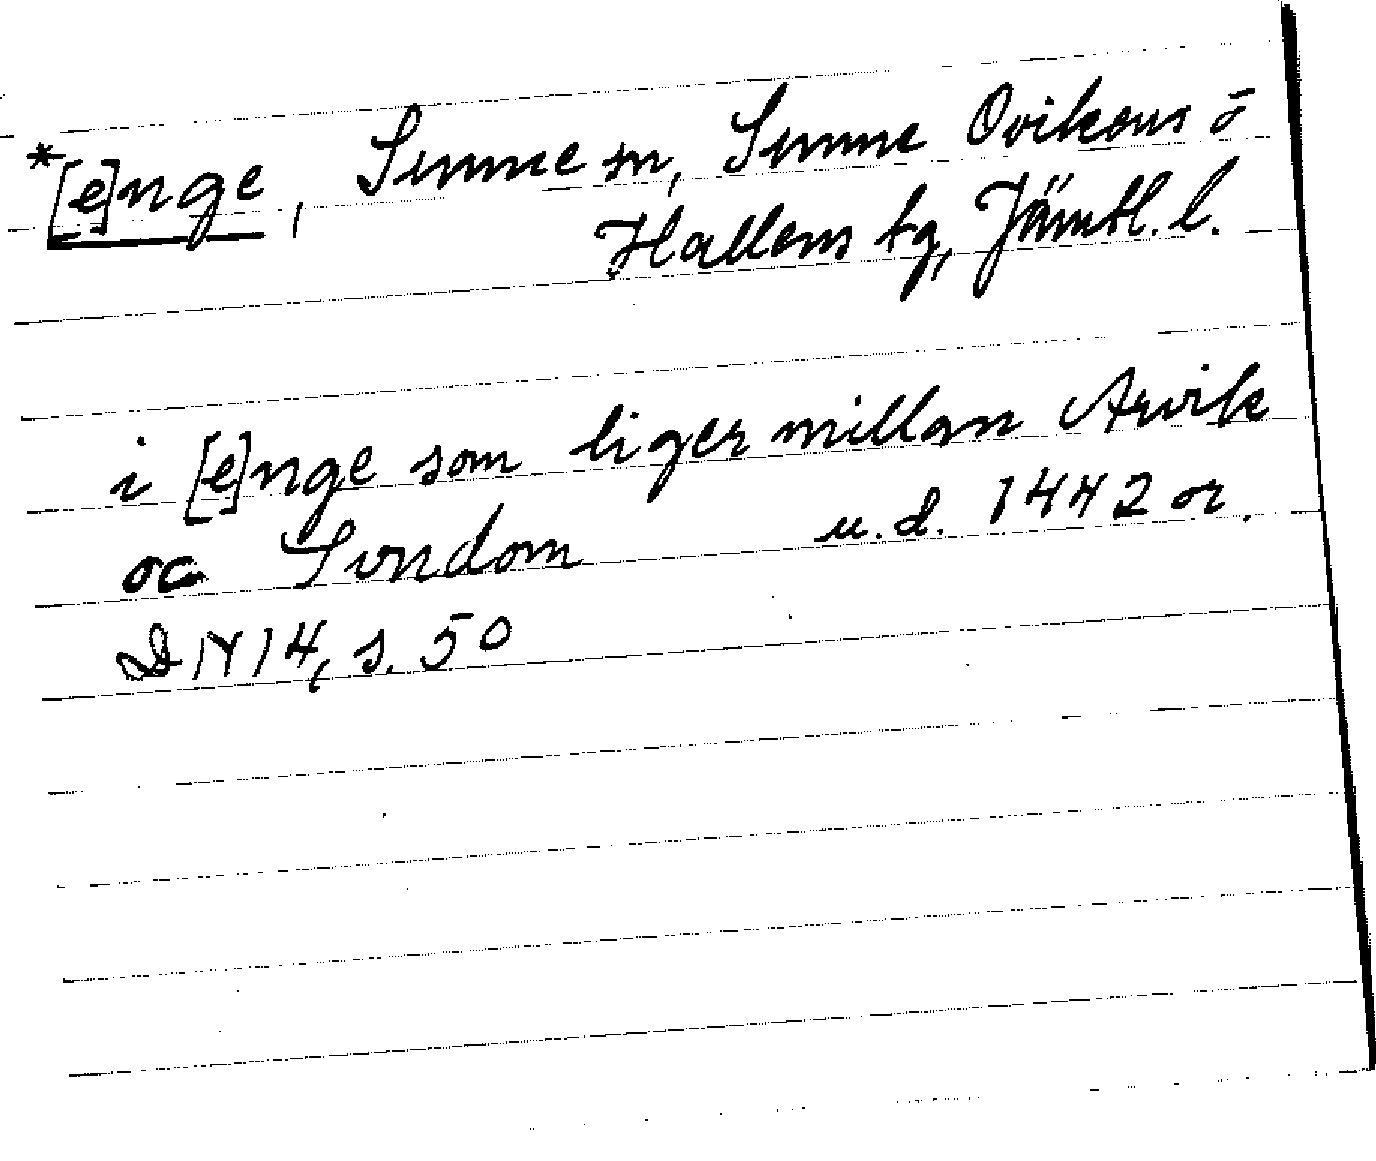 *[e]nge, Sunne sn, Sunne Ovikens o
Hallens tg, Jämtl. l.
i [e]nge som liger millan Arvik
oc Sundom u.d. 1442 or.
DN 14, s. 50